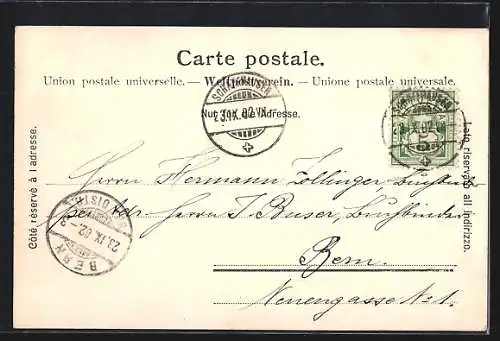 Carte postale.
Union postale universelle. — Weltpostverein. — Unione postale universale.
SCHAFFHAUSEN
23.IX.02.VII
Nur für die Adresse.
SCHAFFHAUSEN
IX.02
Côté réservé à l adresse.
Lato riservato all indirizzo.
Herrn Hermann Zollinger, Buchbinder
per Adr. Herrn J. Buser, Buchbinder
Bern.
Neuengasse No 1.
BERN
23.IX.02.
DISTR.